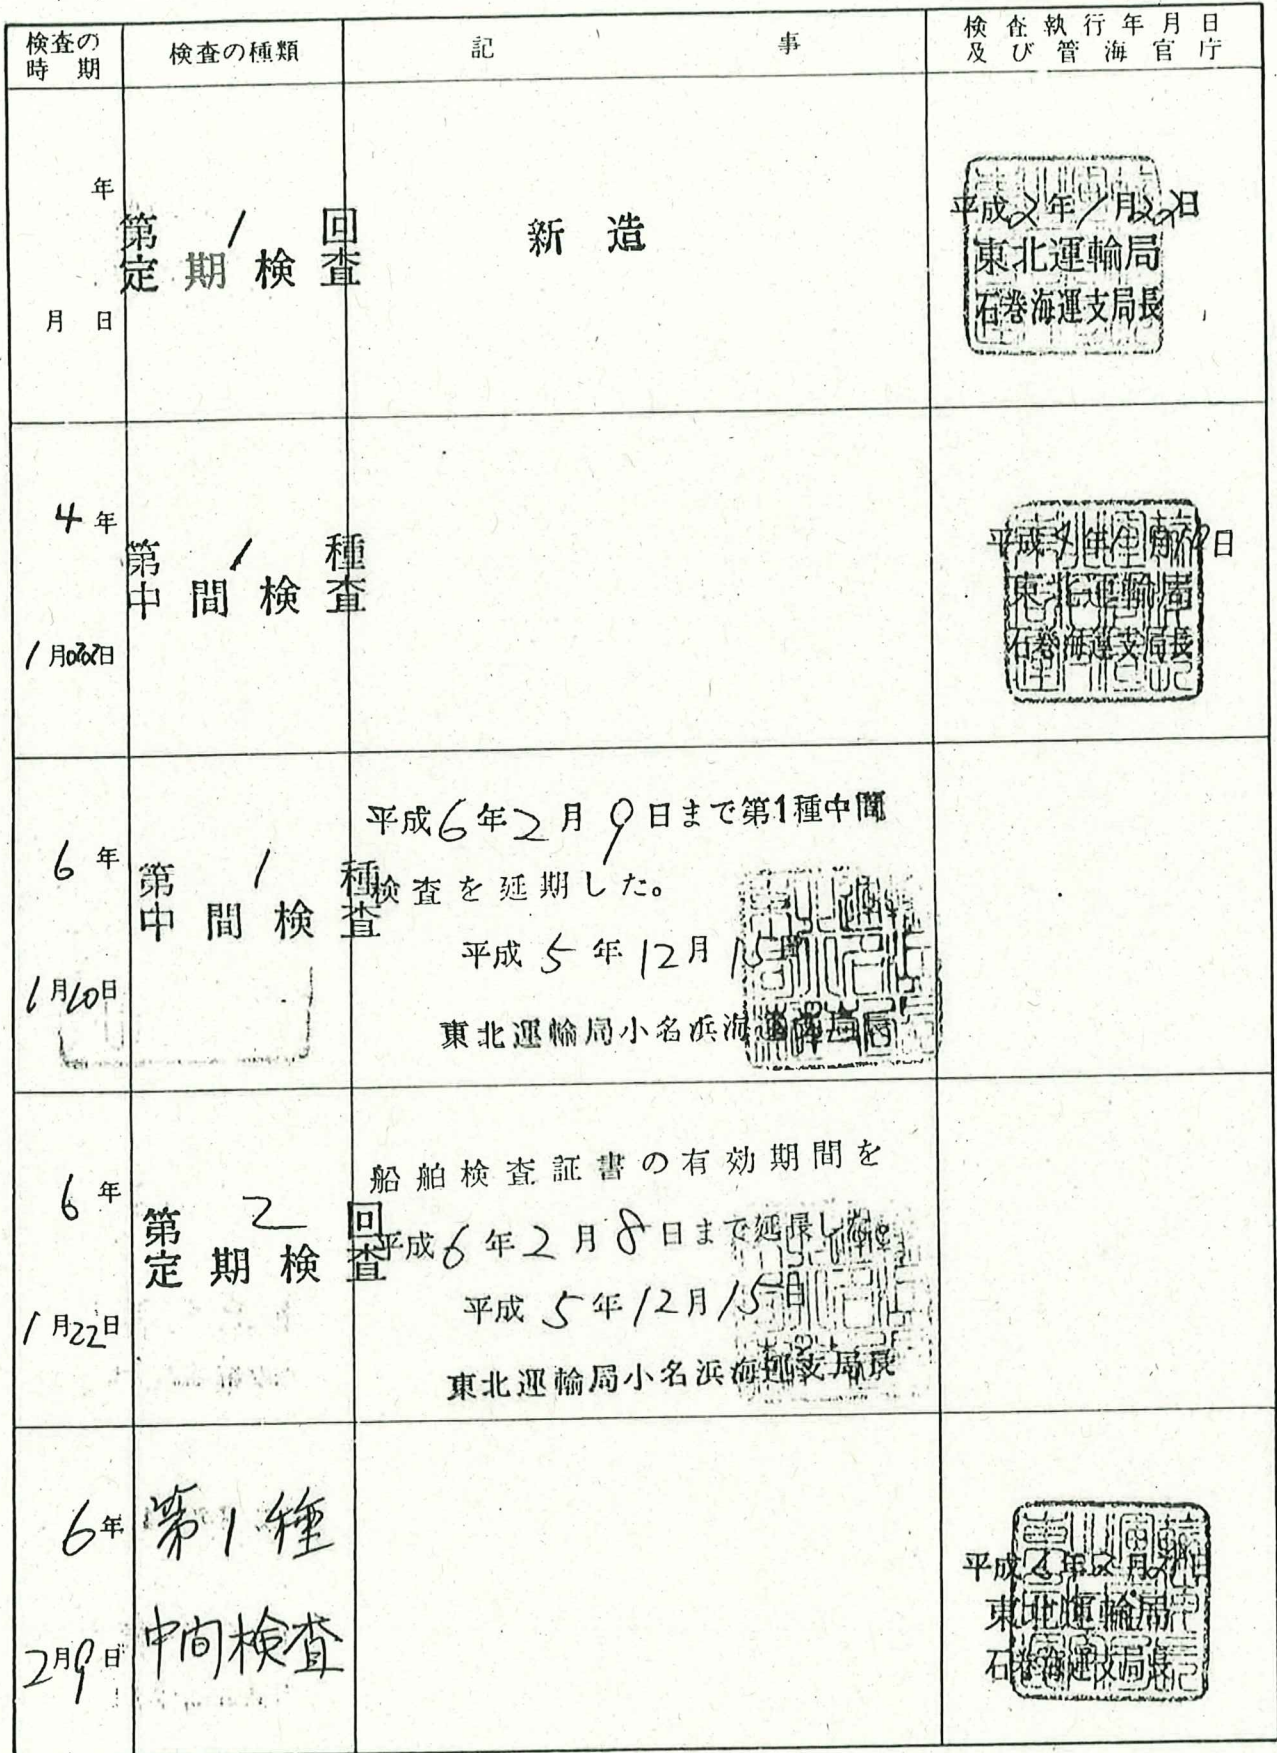 検査の
時期
検査の種類
記事
検査執行年月日
及び管海官庁
年
月日
第1回
定期検査
新造
平成2年1月22日
東北運輸局
石巻海運支局長
4年
1月
日
第1種
中間検査
平成
年
日
東北運輸局
石巻海運支局長
6年
1月10日
第1種
中間検査
平成6年2月9日まで第1種中間
検査を延期した。
平成5年12月15日
東北運輸局小名浜海運支局長
6年
1月22日
第2回
定期検査
船舶検査証書の有効期間を
平成6年2月8日まで延長した。
平成5年12月15日
東北運輸局小名浜海運支局長
6年
2月9日
第1種
中間検査
平成6年2月
日
東北運輸局
石巻海運支局長